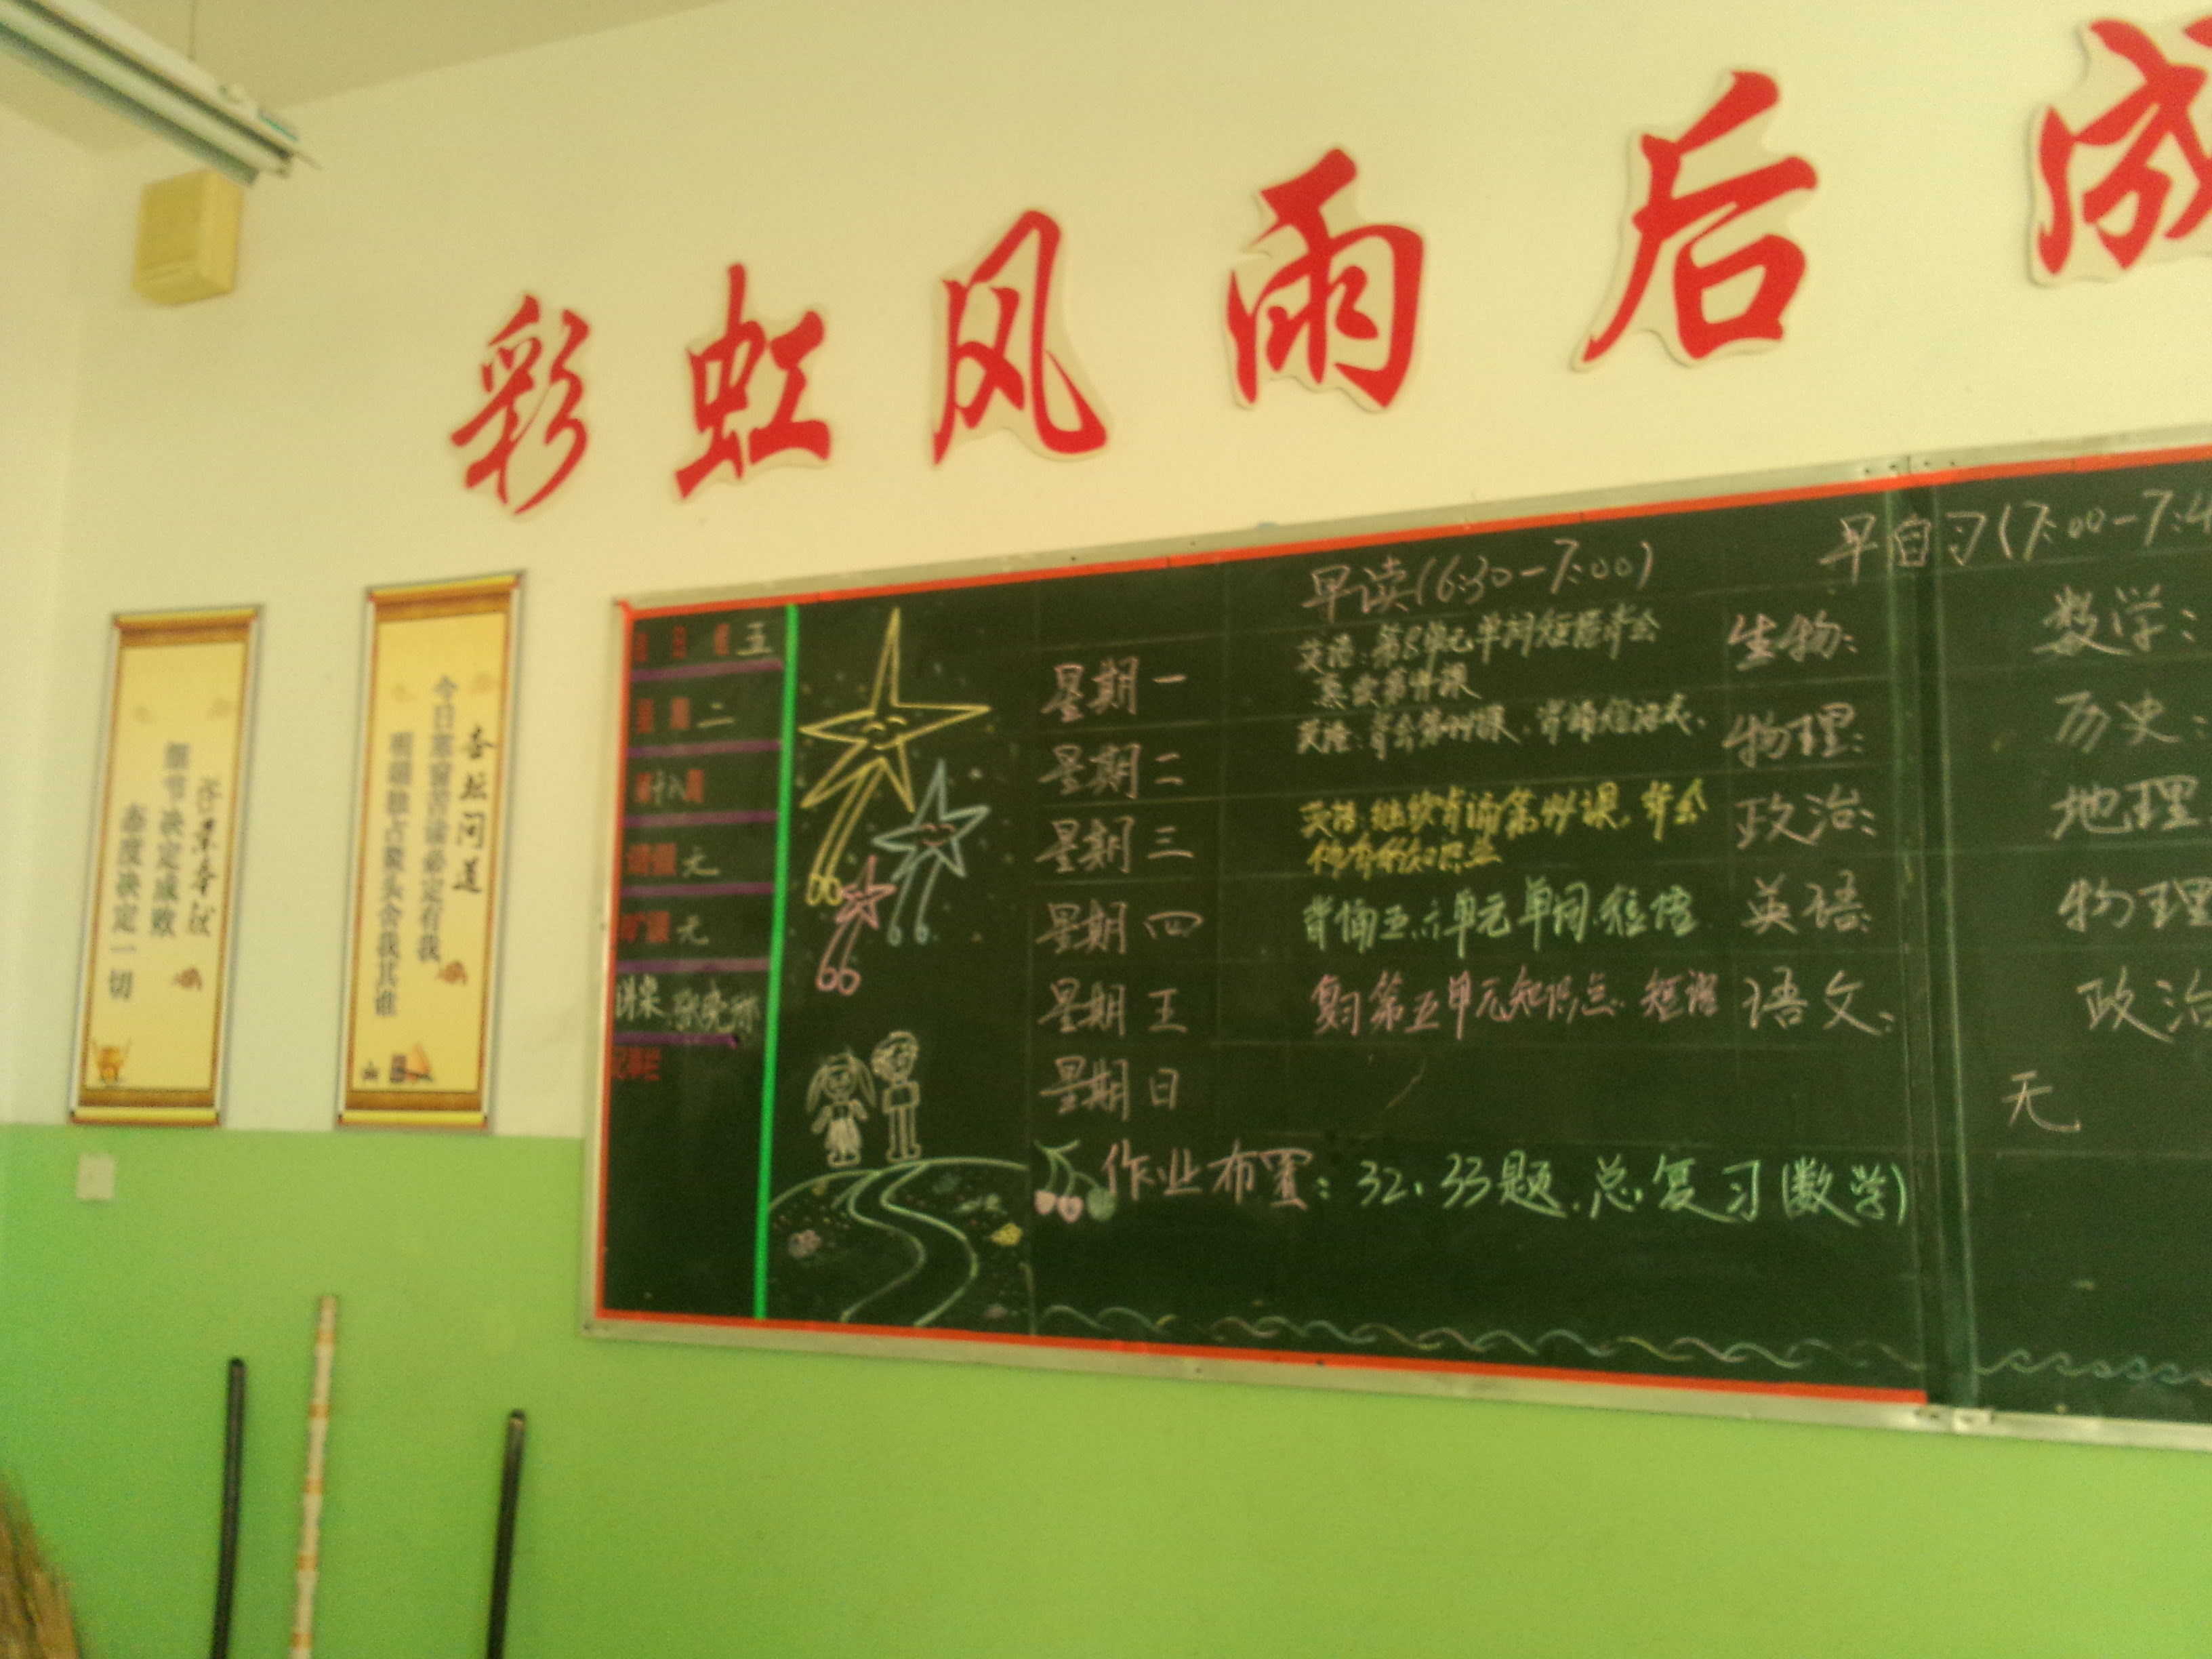 彩虹风雨后成
杏坛问道
今日寒窗苦读必定有我
明朝独占鳌头舍我其谁
细节决定成败
态度决定一切
五
星期二
第十八周
无
旷课 无
早读(6:30-7:00)
早自习(7:00-7:4
星期一
英语:第5单元单词短语背会
生物:
数学:
星期二
物理:
历史:
星期三
英语:继续背诵第44课,背会
政治:
地理
星期四
背诵五、六单元单词、短语
英语:
物理
星期五
复习第五单元知识点、短语
语文:
政治
星期日
无
作业布置:32、33题、总复习(数学)